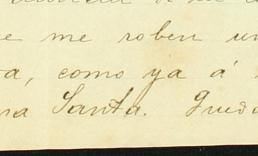 e me roben un
a, como ya á
ra Santa. Queda